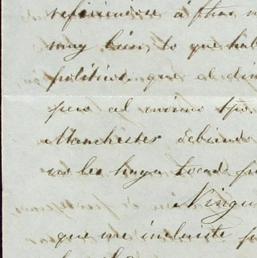 refiriendose á that
muy bien, lo que hab
politica, que al dia
pero al mismo tpo
Manchester debiendo
no les haya tocado
Ningu
que me incluiste